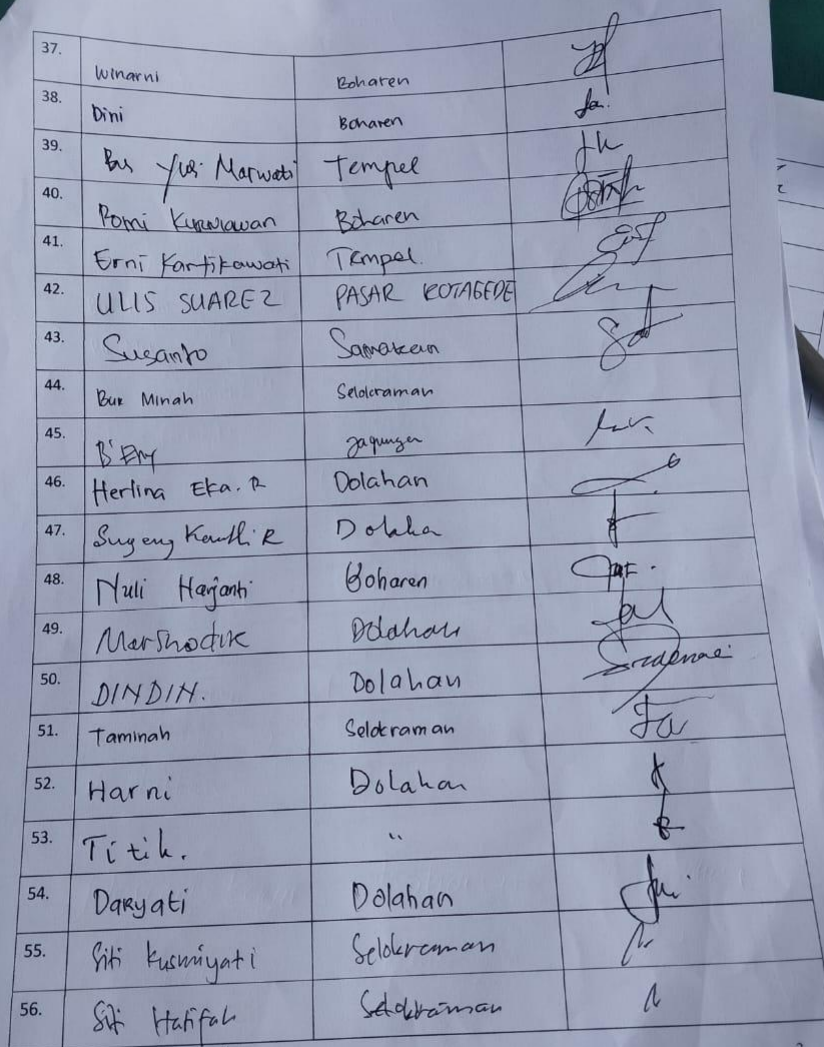 37. Winarni Boharen
38. Dini Boharen
39. Bu Yusi Marwati Tempel
40. Romi Kurniawan Boharen
41. Erni Kartikawati Tempel.
42. ULIS SUAREZ PASAR KOTAGEDE
43. Susanto Samakan
44. Bu Minah Selokraman
45. B'Eny Jagungan
46. Herlina Eka. R Dolahan
47. Sugeng R Dolaha
48. Nuli Harjanti Boharen
49. Marshodik Dolahan
50. DINDIN. Dolahan
51. Taminah Selokraman
52. Harni Dolahan
53. Titik. "
54. Daryati Dolahan
55. Siti Kusmiyati Selokraman
56. Siti Hatifah Selokraman